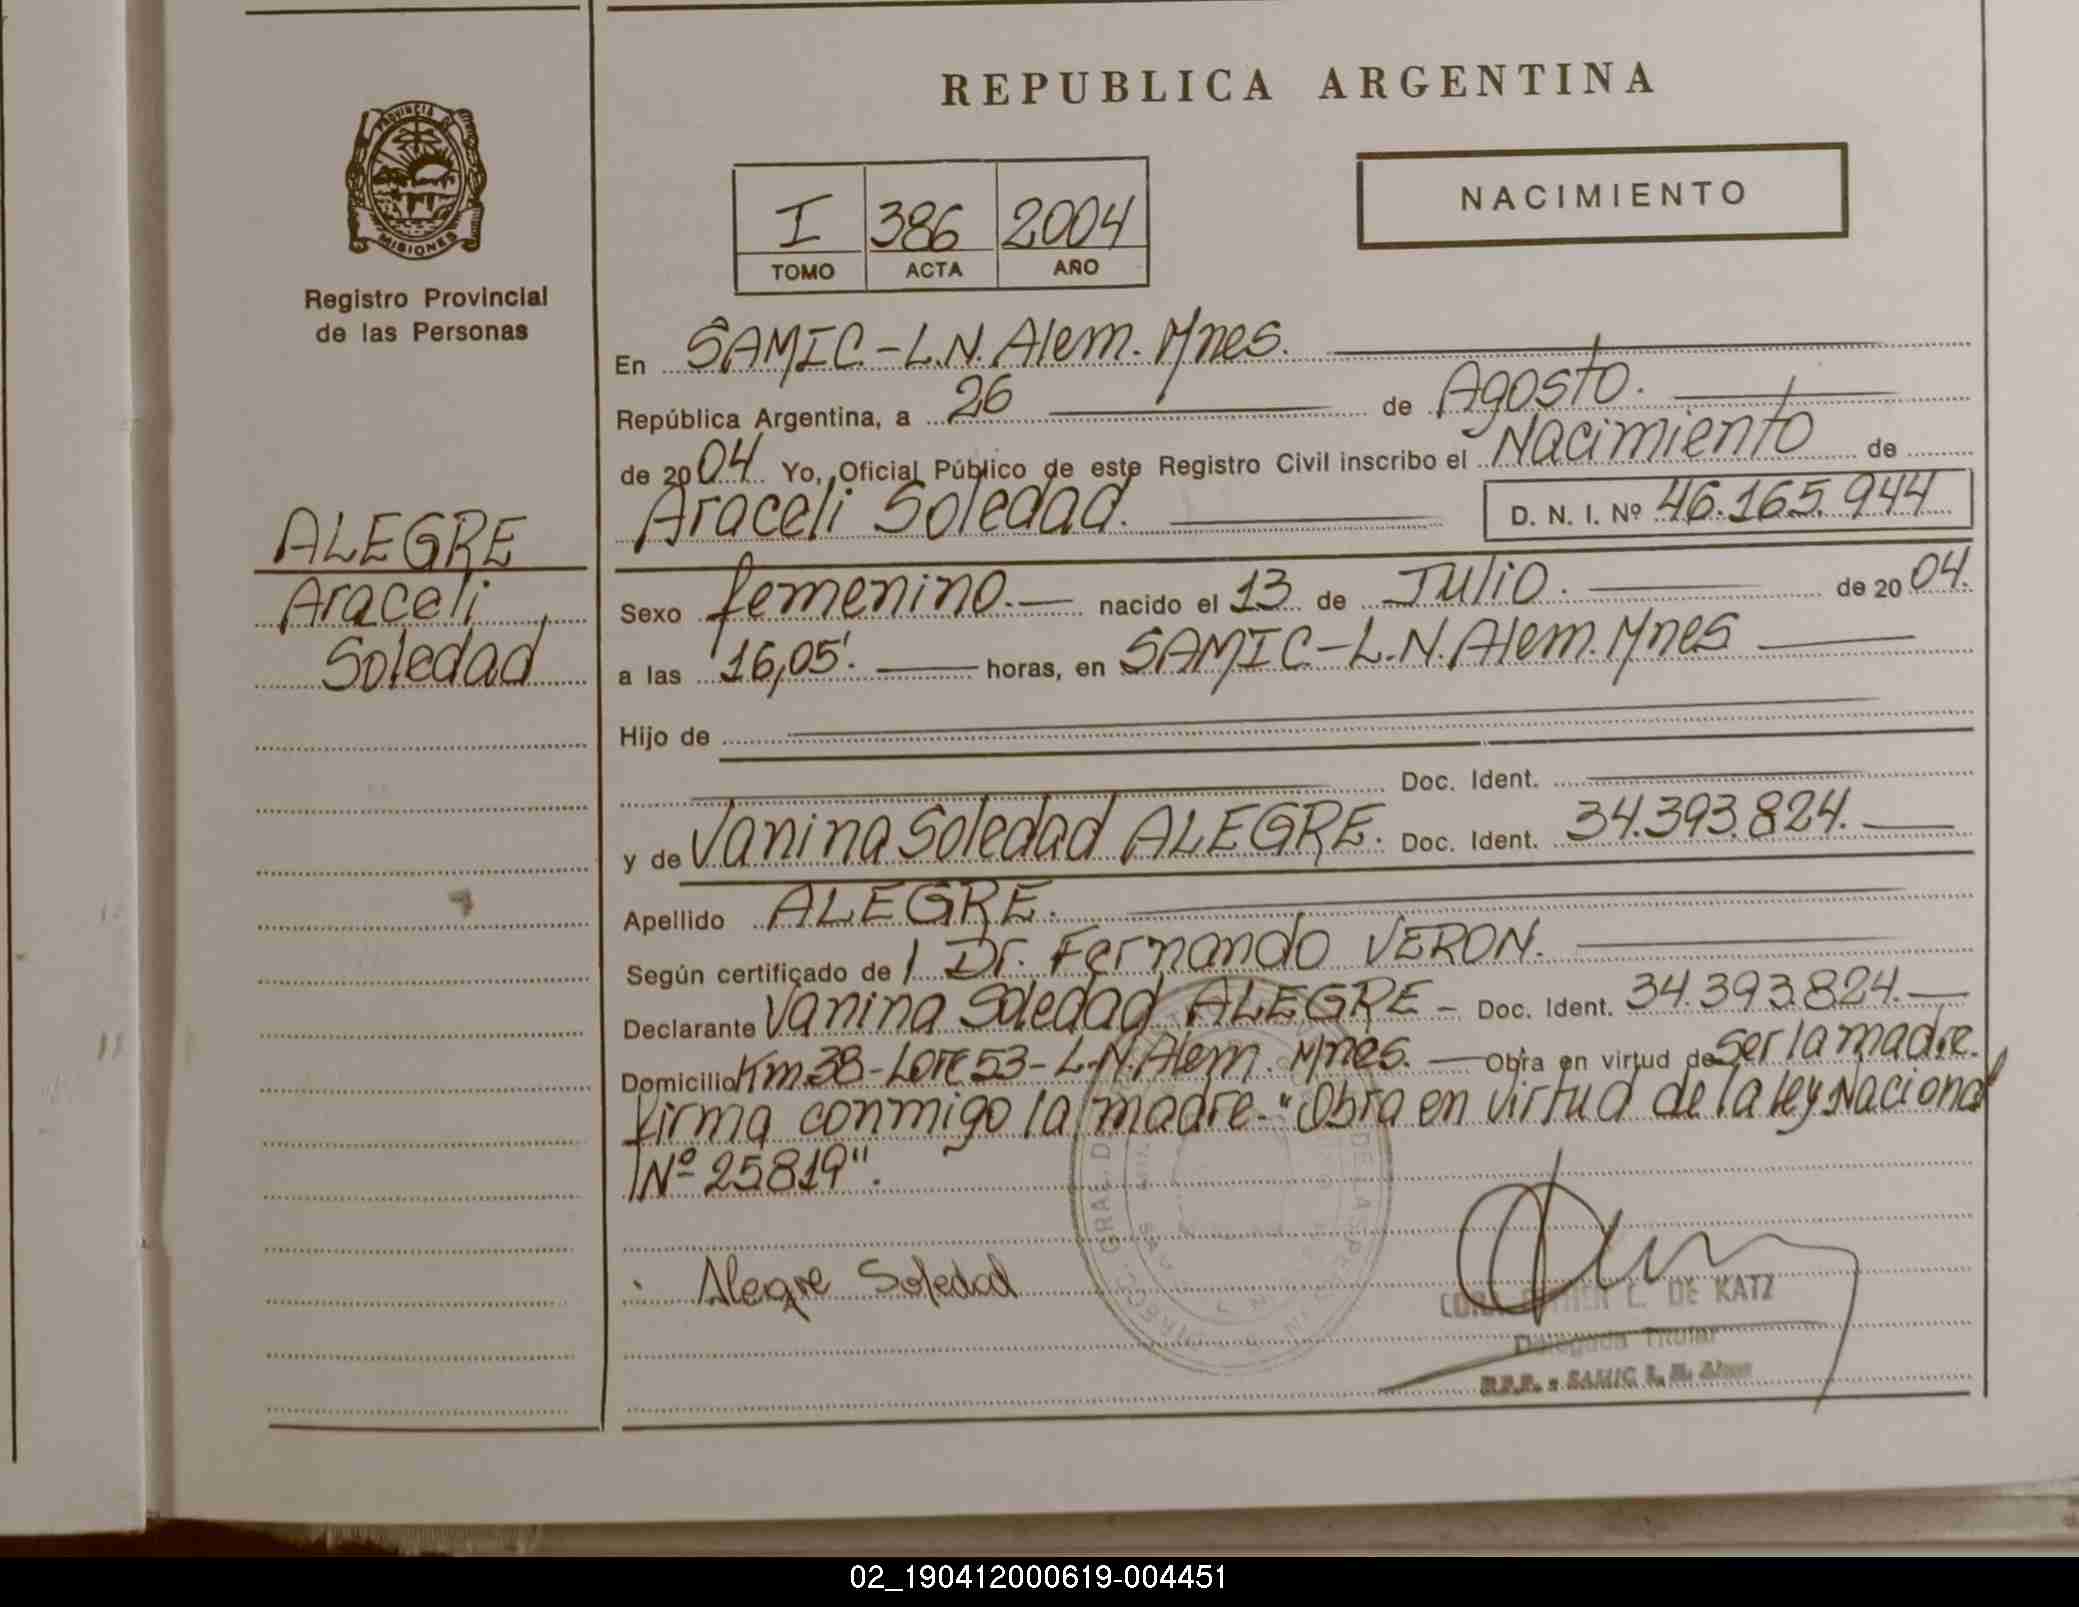 REPUBLICA ARGENTINA
PROVINCIA DE
MISIONES
Registro Provincial
de las Personas
NACIMIENTO
I 386 2004
TOMO ACTA AÑO
En SAMIC-L.N.Alem.Mnes.
República Argentina, a 26 de Agosto.
de 2004. Yo, Oficial Público de este Registro Civil inscribo el Nacimiento de
Araceli Soledad. D. N. I. Nº 46.165.944
ALEGRE
Araceli
Soledad
Sexo femenino.- nacido el 13 de Julio. de 2004.
a las 16,05'. horas, en SAMIC-L.N.Alem.Mnes
Hijo de
Doc. Ident.
y de Vanina Soledad ALEGRE. Doc. Ident. 34.393.824.
Apellido ALEGRE.
Según certificado de l Dr. Fernando VERON.
Declarante Vanina Soledad ALEGRE - Doc. Ident. 34.393.824.-
Domicilio Km 38-Lote 53-L.N.Alem. Mnes. Obra en virtud de ser la madre.
firma conmigo la madre-"Obra en virtud de la ley Nacional
Nº 25819".
Alegre Soledad
DE KATZ
Delegada Titular
R.P.P. - SAMIC L. N. Alem
02_190412000619-004451